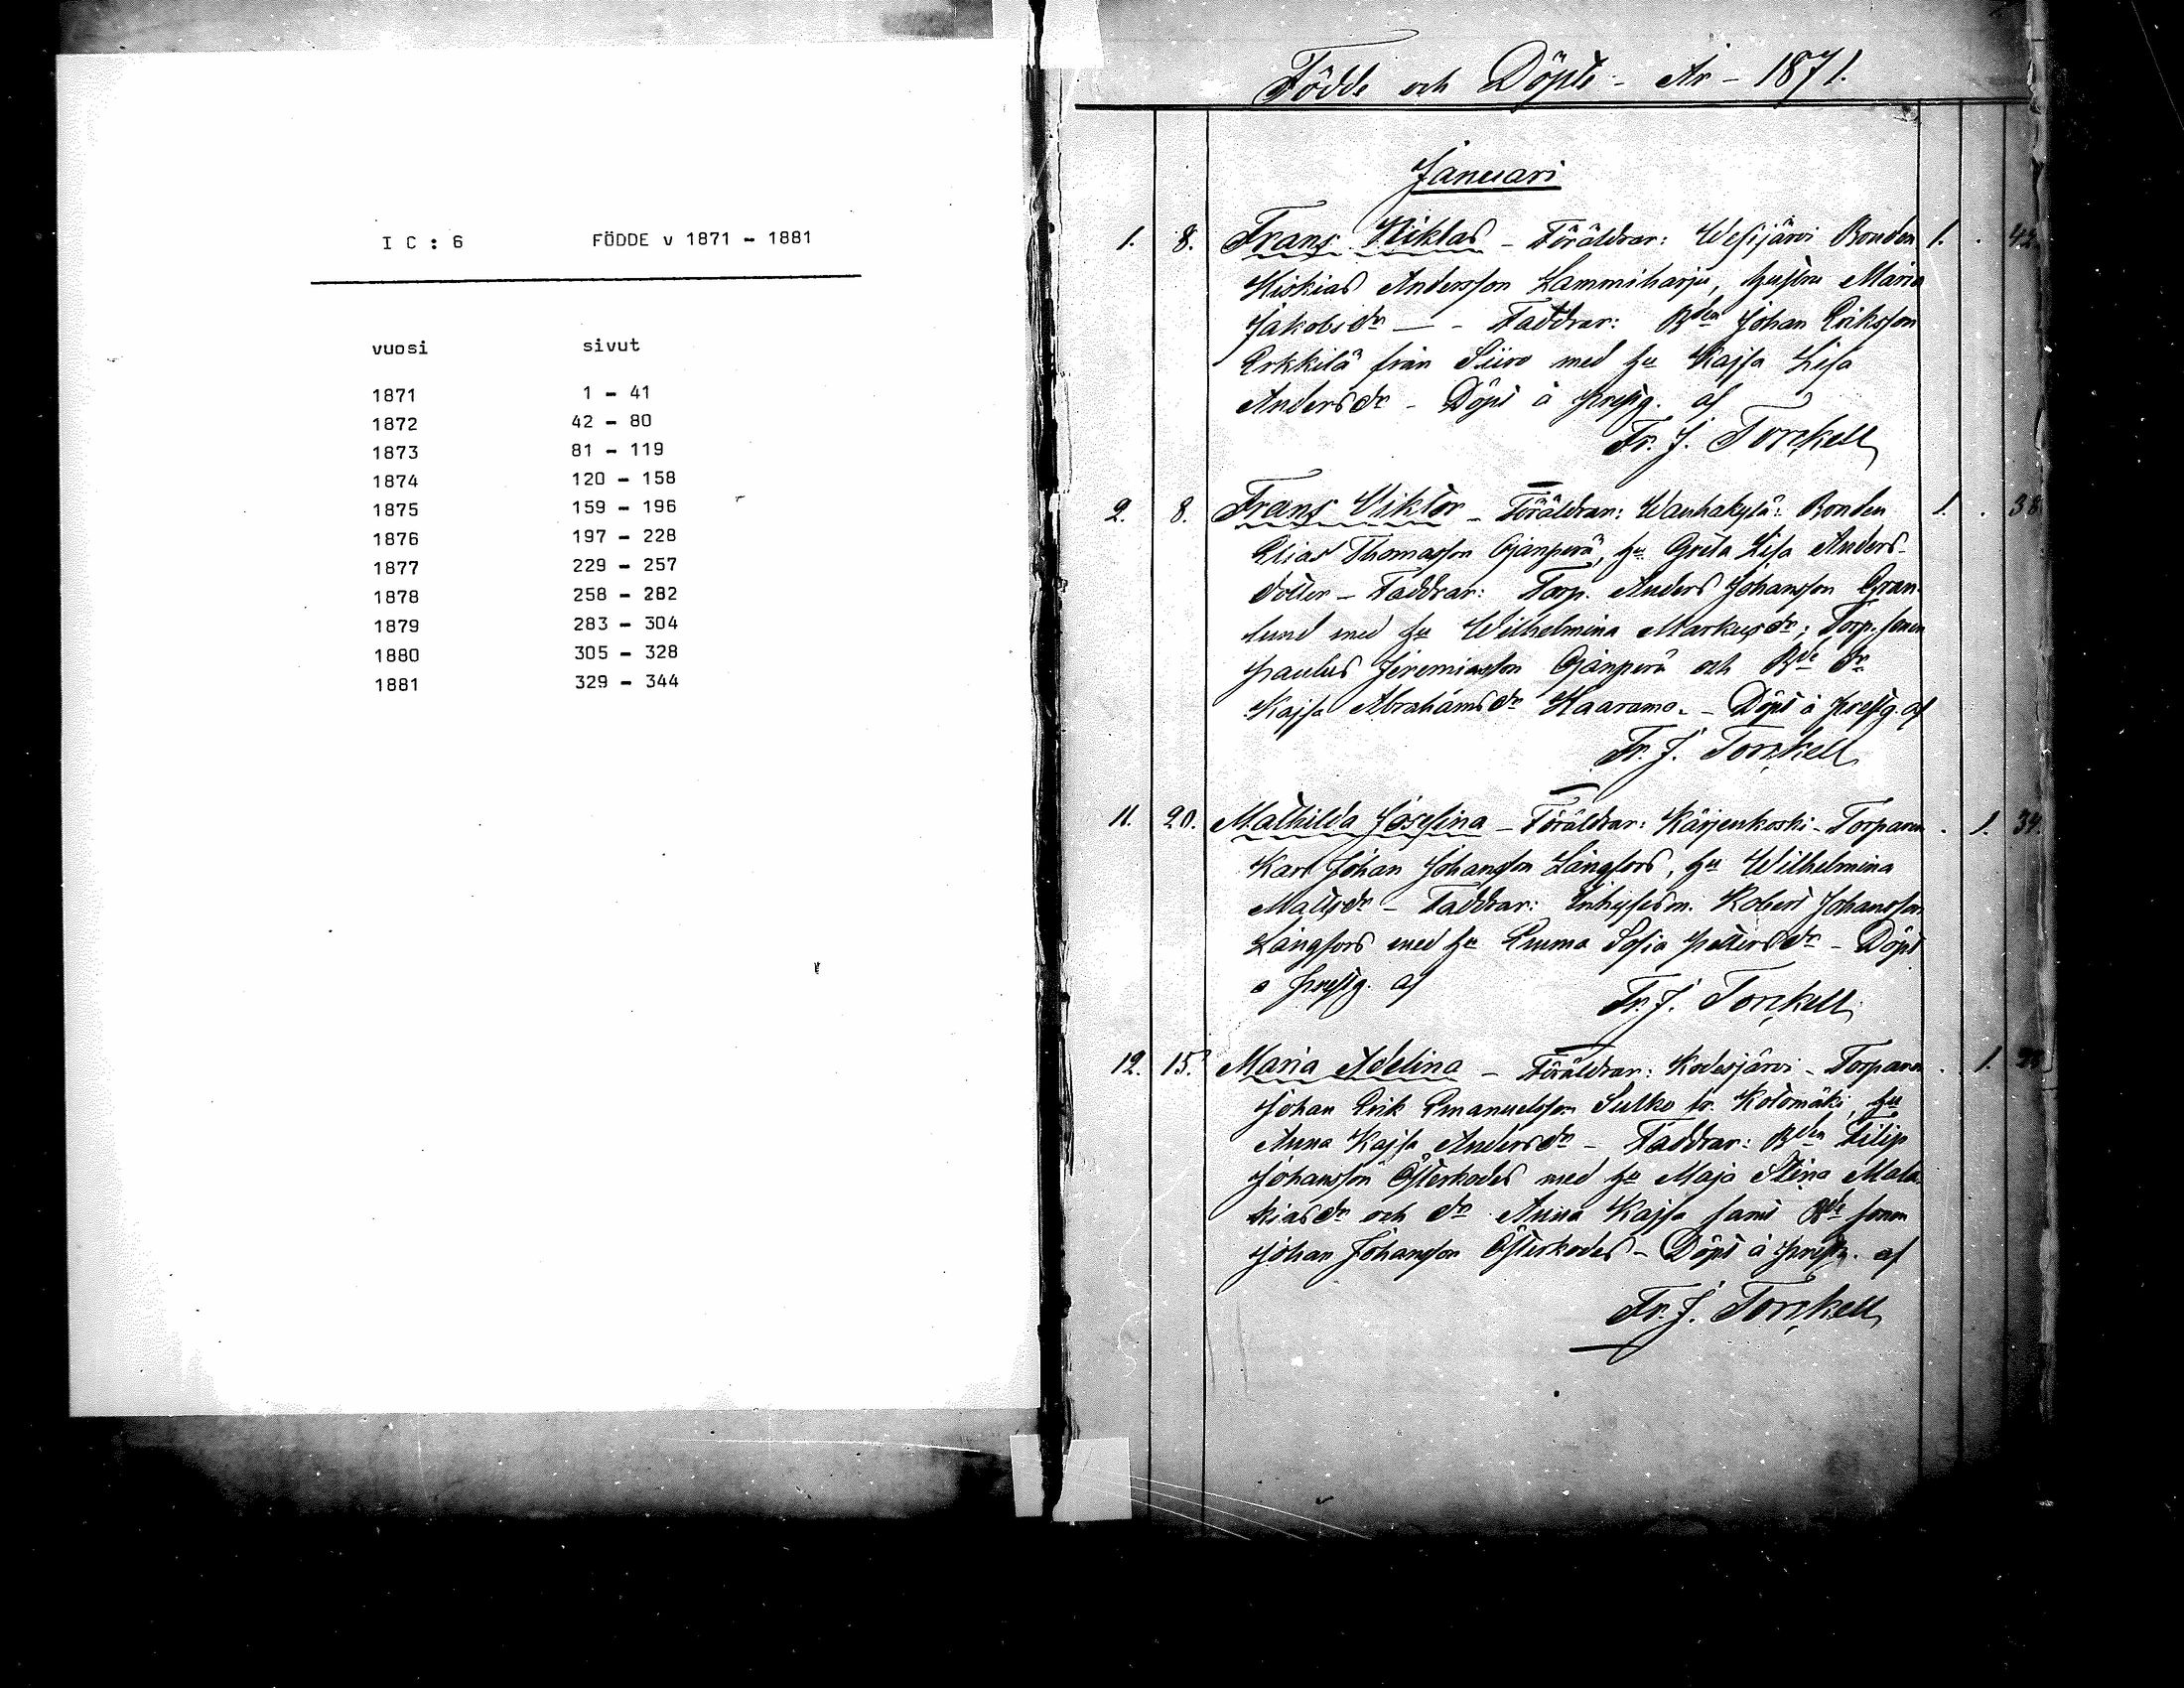 I C : 6 FÖDDE v 1871 - 1881
vuosi sivut
1871 1 - 41
1872 42 - 80
1873 81 - 119
1874 120 - 158
1875 159 - 196
1876 197 - 228
1877 229 - 257
1878 258 - 282
1879 283 - 304
1880 305 - 328
1881 329 - 344
Födde och Döpte - År - 1871.
Januari
1. 8. Frans Niklas - Föräldrar: Wesijärvi Bonden 1. .
Hiskias Andersson Lammiharju, hustru Maria
Jakobsdr - Faddrar: Bden Johan Eriksson
Erkkilä från Siiro med hu Kajsa Lisa
Andersdr - Döpt å prestg. af
Fr. J. Torckell
2. 8. Frans Viktor - Föräldrar: Wanhakylä: Bonden 1. . 38
Elias Thomasson Ojanperä, hu Greta Lisa Anders-
dotter - Faddrar: Torp. Anders Johansson Gran-
lund med hu Wilhelmina Markusdr; Torp. sonen
Paulus Jeremiasson Ojanperä och Bde dr
Kajsa Abrahamsdr Haaramo. - Döpt å prestg. af
Fr. J. Torckell
11. 20. Mathilda Josefina - Föräldrar: Kärjenkoski - Torparen . 1. 34.
Karl Johan Johansson Långfors, hu Wilhelmina
Mattsdr - Faddrar: Inhysesm. Robert Johansson
Långfors med hu Emma Sofia Pettersdr - Döpt
å prestg. af
Fr. J. Torckell
12. 15. Maria Adelina - Föräldrar: Kodesjärvi - Torparen . 1.
Johan Erik Emanuelsson Sulko Kotomäki, hu
Anna Kajsa Andersdr - Faddrar: Bden Filip
Johansson Österkodes med hu Maja Stina Mala-
kiasdr och dr Anna Kajsa samt Bde sonen
Johan Johansson Österkodes - Döpt å prestg. af
Fr. J. Torckell